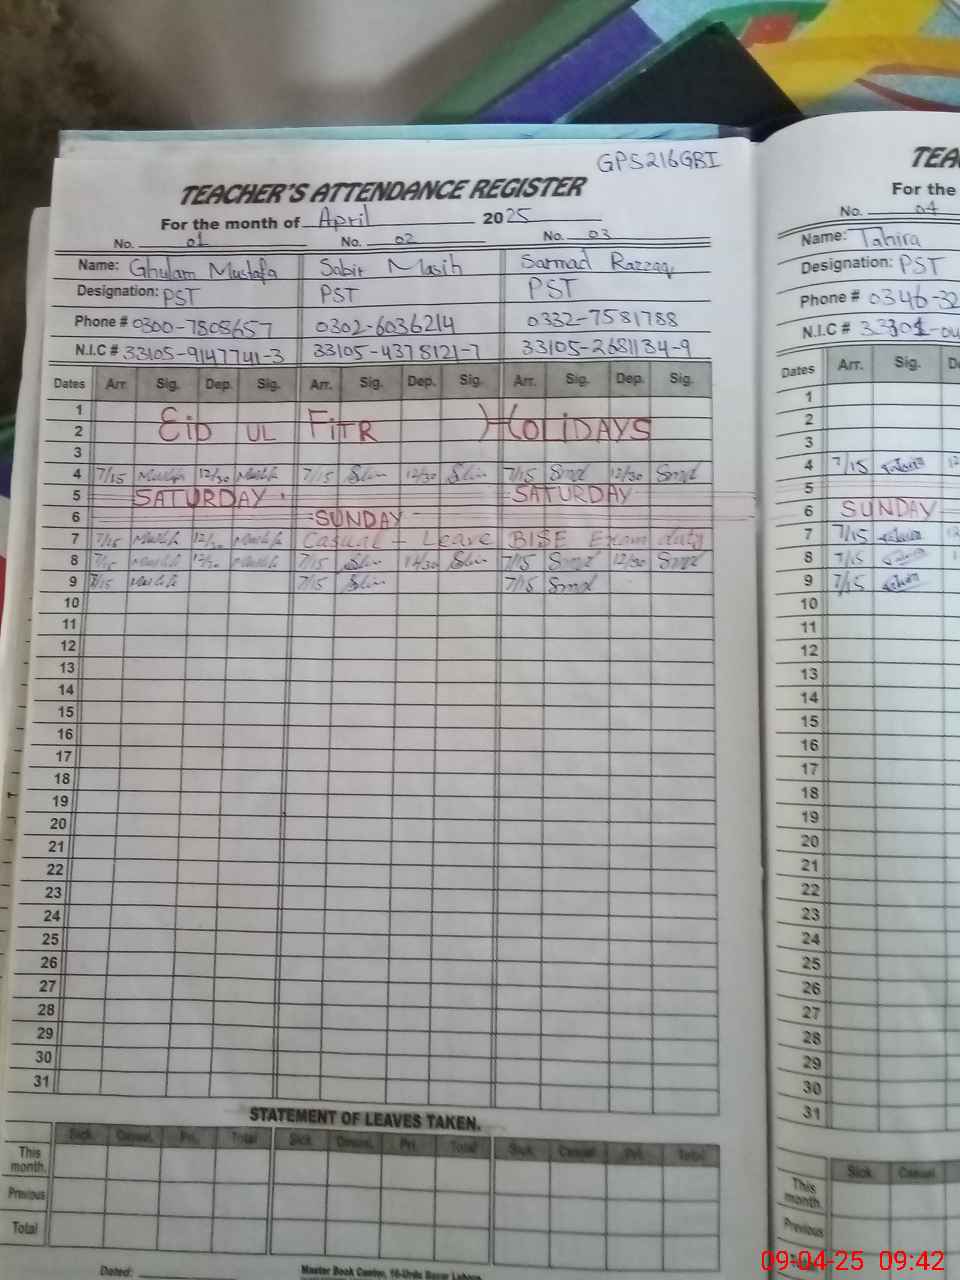 GPS216GBI
TEACHER'S ATTENDANCE REGISTER
For the month of April 2025
No. 01 No. 02 No. 03
Name: Ghulam Mustafa Sabir Masih Sarmad Razzaq
Designation: PST PST PST
Phone # 0300-7808657 0302-6036214 0332-7581788
N.I.C # 33105-9147741-3 33105-4378121-7 33105-2681134-9
Dates Arr. Sig. Dep. Sig. Arr. Sig. Dep. Sig. Arr. Sig. Dep. Sig.
1
2 Eid UL FITR HOLIDAYS
3
4 7/15 12/30 7/15 12/30 7/15 Smd 12/30 Smd
5 SATURDAY SATURDAY
6 SUNDAY
7 7/15 12/30 Casual - Leave BISE Exam duty
8 7/15 12/30 7/15 12/30 7/15 Smd 12/30 Smd
9 7/15 7/15 7/15 Smd
10
11
12
13
14
15
16
17
18
19
20
21
22
23
24
25
26
27
28
29
30
31
STATEMENT OF LEAVES TAKEN.
Sick. Casual. Pri. Total Sick. Casual. Pri. Total Sick. Casual Pri. Total
This month.
Previous
Total
Dated:
Master Book Center, 16-Urdu Bazar Lahore
TEA
For the
No. 04
Name: Tahira
Designation: PST
Phone # 0346-32
N.I.C # 33301-04
Dates Arr. Sig. De
1
2
3
4 7/15
5
6 SUNDAY
7 7/15
8 7/15
9 7/15
10
11
12
13
14
15
16
17
18
19
20
21
22
23
24
25
26
27
28
29
30
31
Sick. Casual
This month.
Previous
09-04-25 09:42